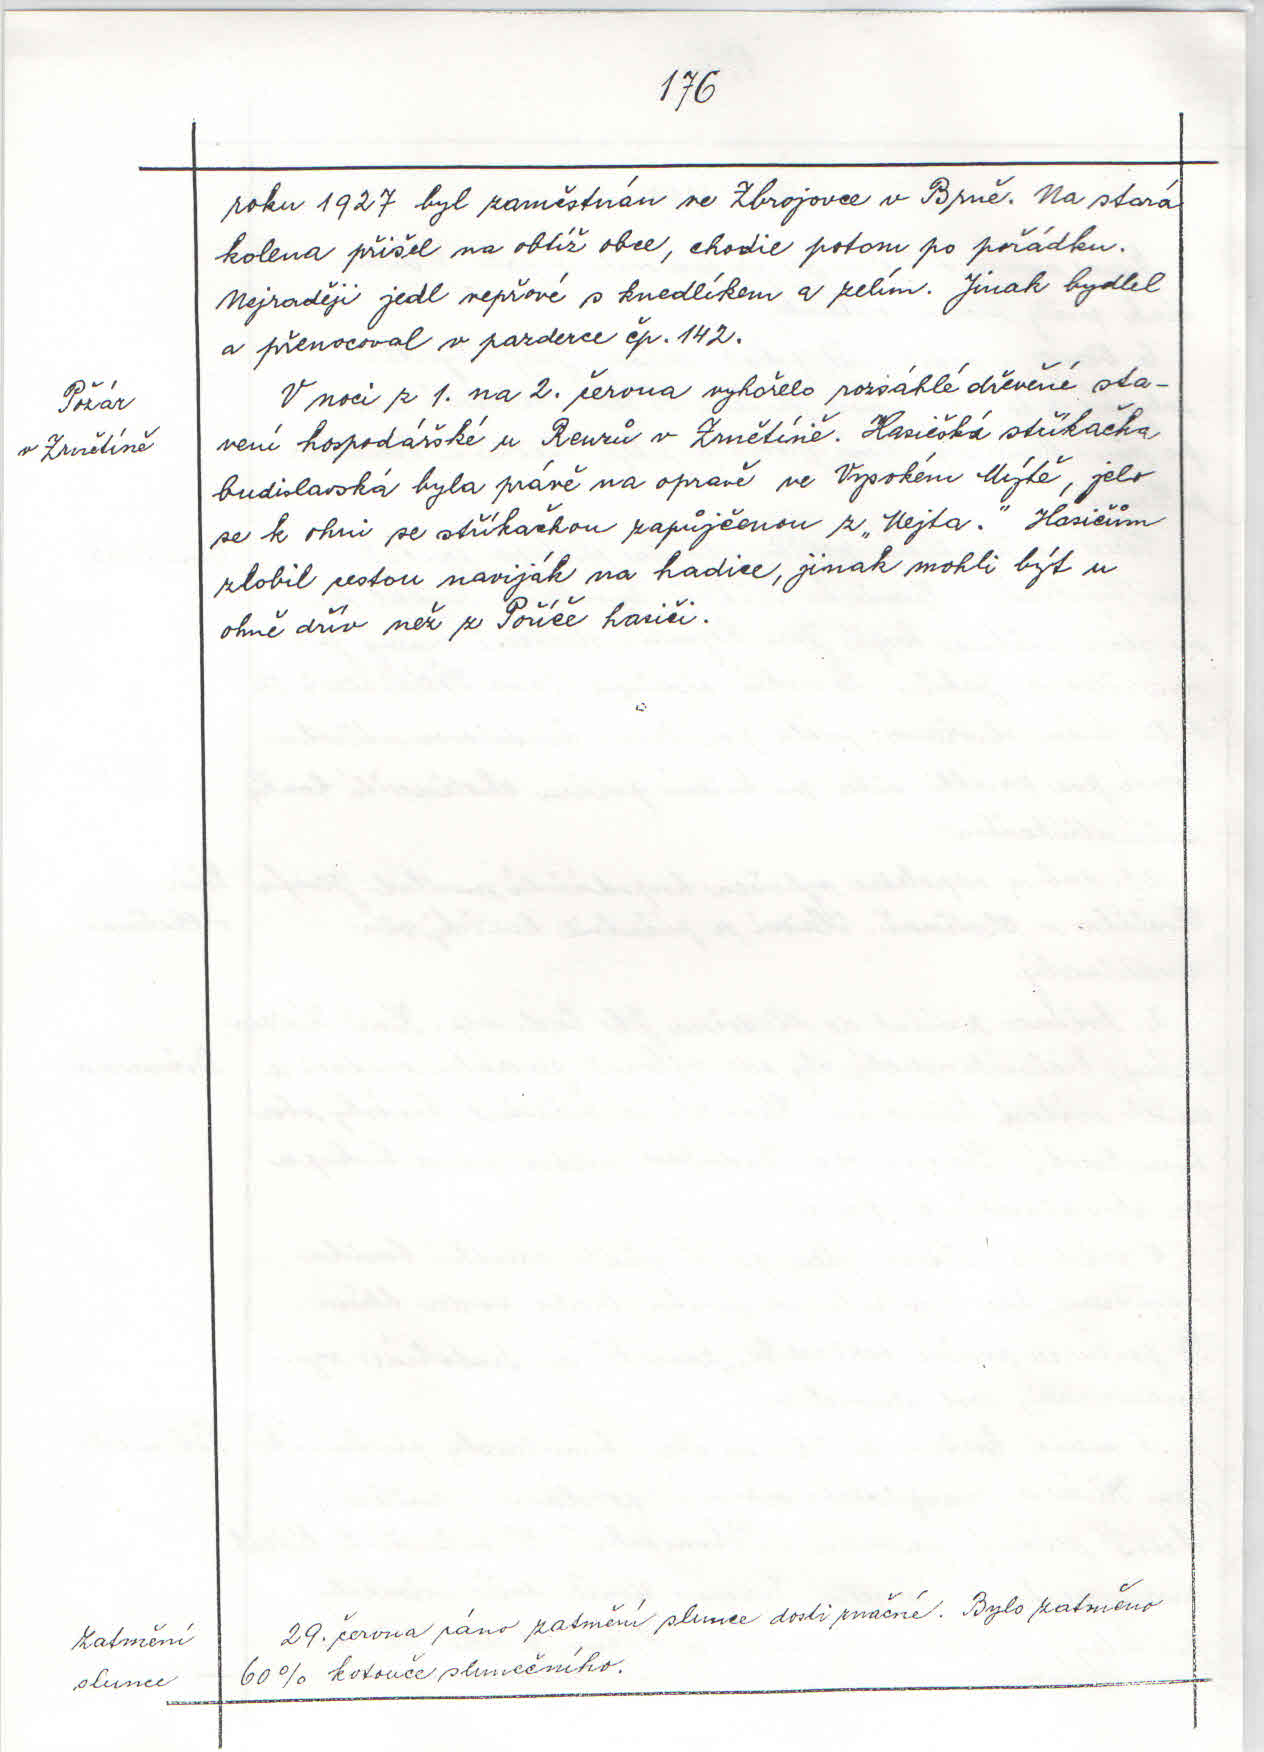 176
roku 1927 byl zaměstnán ve Zbrojovce v Brně. Na stará
kolena přišel na obtíž obce, chodie potom po pořádku.
Nejraději jedl vepřové s knedlíkem a zelím. Jinak bydlel
a přenocoval v pazderce čp. 142.
Požár
v Zrnětíně
V noci z 1. na 2. června vyhořelo rozsáhlé dřevěné sta-
vení hospodářské u Renzů v Zrnětíně. Hasičská stříkačka
budislavská byla právě na opravě ve Vysokém Mýtě, jelo
se k ohni se stříkačkou zapůjčenou z „Mejta.“ Hasičům
zlobil cestou naviják na hadice, jinak mohli být u
ohně dřív než z Poříče hasiči.
Zatmění
slunce
29. června ráno zatmění slunce dosti značné. Bylo zatměno
60% kotouče slunečního.